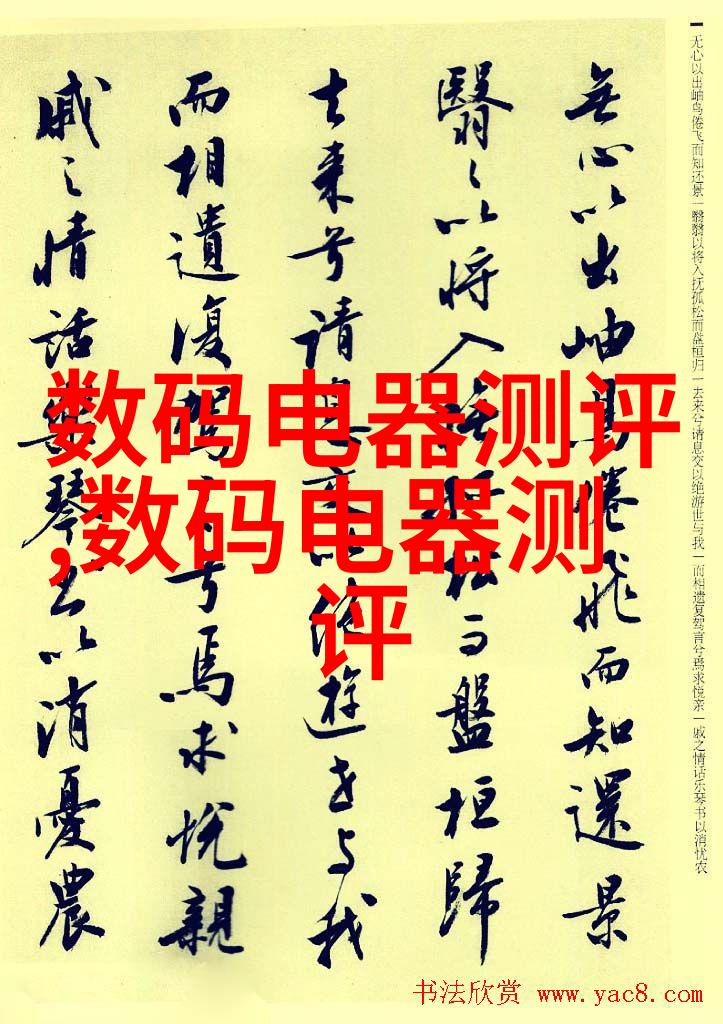 无心以出岫鸟倦飞而知还景一翳翳以将入抚孤松而盘桓归一去来兮请息交以绝游世与我一而相遗复驾言兮焉求悦亲一戚之情话乐琴书以消忧农
無心以出岫鳥倦飛而知還景
翳〻以将入撫孤松而盤桓歸
去来兮请息交以絶遊世与我
而相遺復駕言兮焉求悦親
戚之情話樂琴書以消憂農
数码电器测评
,数码电器测
评
书法欣赏 www.yac8.com